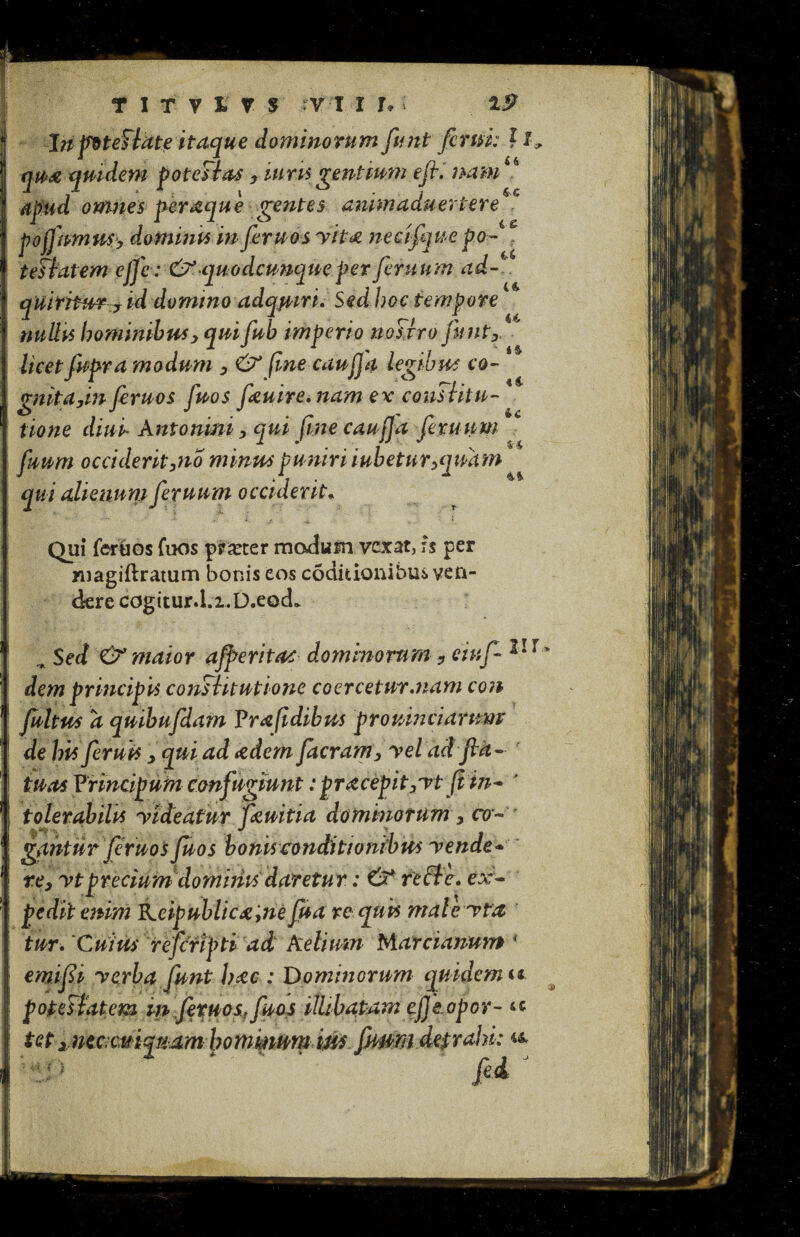 TITVLVS VIII. 19
In poteſtate itaque dominorum ſunt ſerui: II.
quæ quidem poteſtas, iuris gentium eſt. nam “
apud omnes peræque gentes animaduertere “
poſſumus, dominis in ſeruos vitæ neciſque po- “
teſtatem eſſe: & quodcunque per ſeruum ad- “
quiritur, id domino adquiri. Sed hoc tempore “
nullis hominibus, qui ſub imperio noſtro ſunt, “
licet ſupra modum, & ſine cauſſa legibus co- “
gnita, in ſeruos ſuos ſæuire. nam ex conſtitu- “
tione diui Antonini, qui ſine cauſſa ſeruum “
ſuum occiderit, nõ minus puniri iubetur, quàm “
qui alienum ſeruum occiderit. “
Qui ſeruos ſuos præter modum vexat, is per
magiſtratum bonis eos cõditionibus ven-
dere cogitur. l.2. D. eod.
Sed & maior aſperitas dominorum, eiuſ- III.
dem principis conſtitutione coercetur. nam con
ſultus à quibuſdam Præſidibus prouinciarum
de his ſeruis, qui ad ædem ſacram, vel ad ſta-
tuas Principum confugiunt: præcepit, vt ſi in-
tolerabilis videatur ſæuitia dominorum, co-
gantur ſeruos ſuos bonis conditionibus vende-
re, vt precium dominis daretur: & rectè. ex-
pedit enim Reipublicæ, ne ſua re quis malè vta
tur. Cuius reſcripti ad Aelium Marcianum
emiſſi verba ſunt hæc: Dominorum quidem “
poteſtatem in ſeruos ſuos illibatam eſſe opor- “
tet, nec cuiquam hominum ius ſuum detrahi: “
ſed